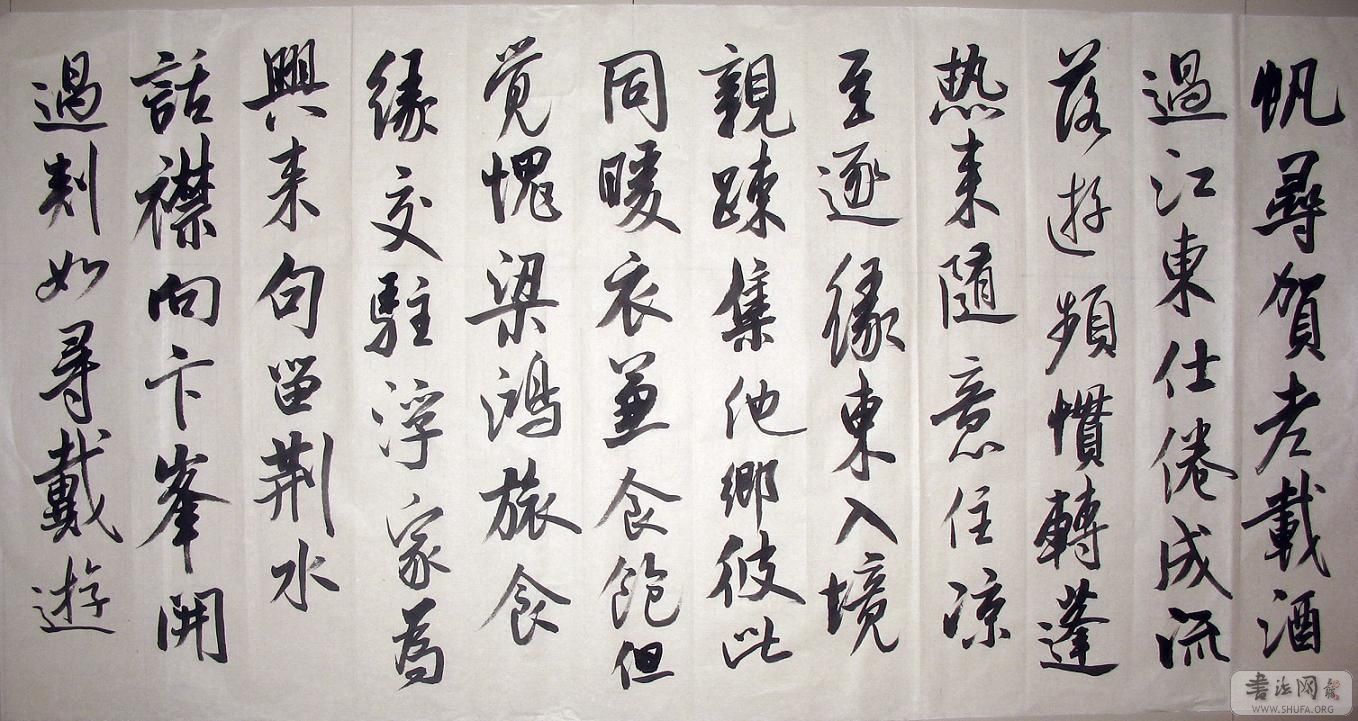 帆尋賀老載酒
過江東仕倦成流
落遊頻慣轉蓬
热来隨意住凉
至逐缘東入境
親踈集他鄉彼此
同暖衣兼食飽但
觉愧梁鴻旅食
缘交駐浮家為
興来句留荆水
話襟向卞峯開
過剡如尋戴遊
書法网
WWW.SHUFA.ORG